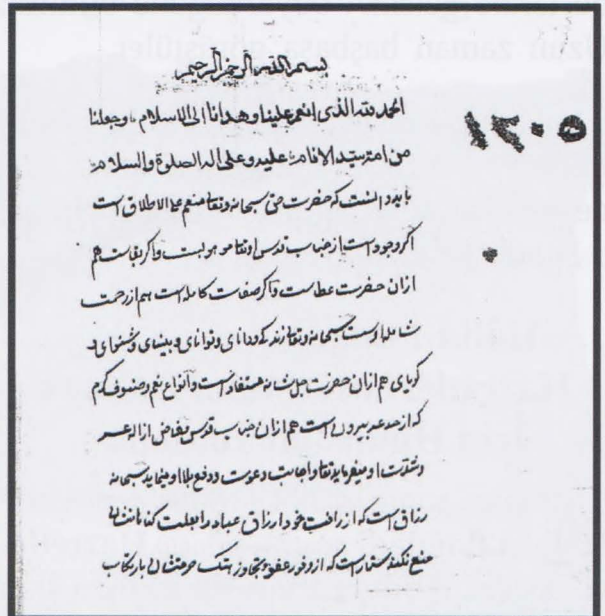 بسم الله الرحمن الرحیم
الحمد لله الذی انعم علینا و هدانا الی الاسلام و جعلنا
من امة سید الانام علیه و علی آله الصلوة والسلام
باید دانست که حضرت حق سبحانه و تعالی منعم علی الاطلاق است
اگر وجود است از جناب قدس او تعالی موهوبست و اگر بقاست هم
ازان حضرت عطاست و اگر صفات کامله است هم از رحمت
شامله است سبحانه و تعالی زندگی و دانای و توانای و بینای و شنوای و
گویای هم ازان حضرت جل شانه مستفاد است و انواع نعم و صنوف کرم
که از حد عد بیرون است هم ازان جناب قدس مفاض ازاله عسر
و شدت او میفرماید تعالی و اجابت دعوت و دفع بلا او مینماید سبحانه
رزاق است که از رافت خود ارزاق عباد را بعلت کناهانشان
منع نکند ستار است که از وفور عفو و تجاوز بهتک حرمتشان بارتکاب
١٢٠٥